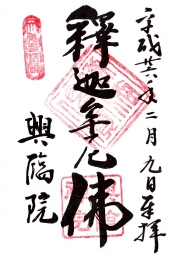 平成廿六年二月九日奉拝
釋迦牟尼佛
興臨院